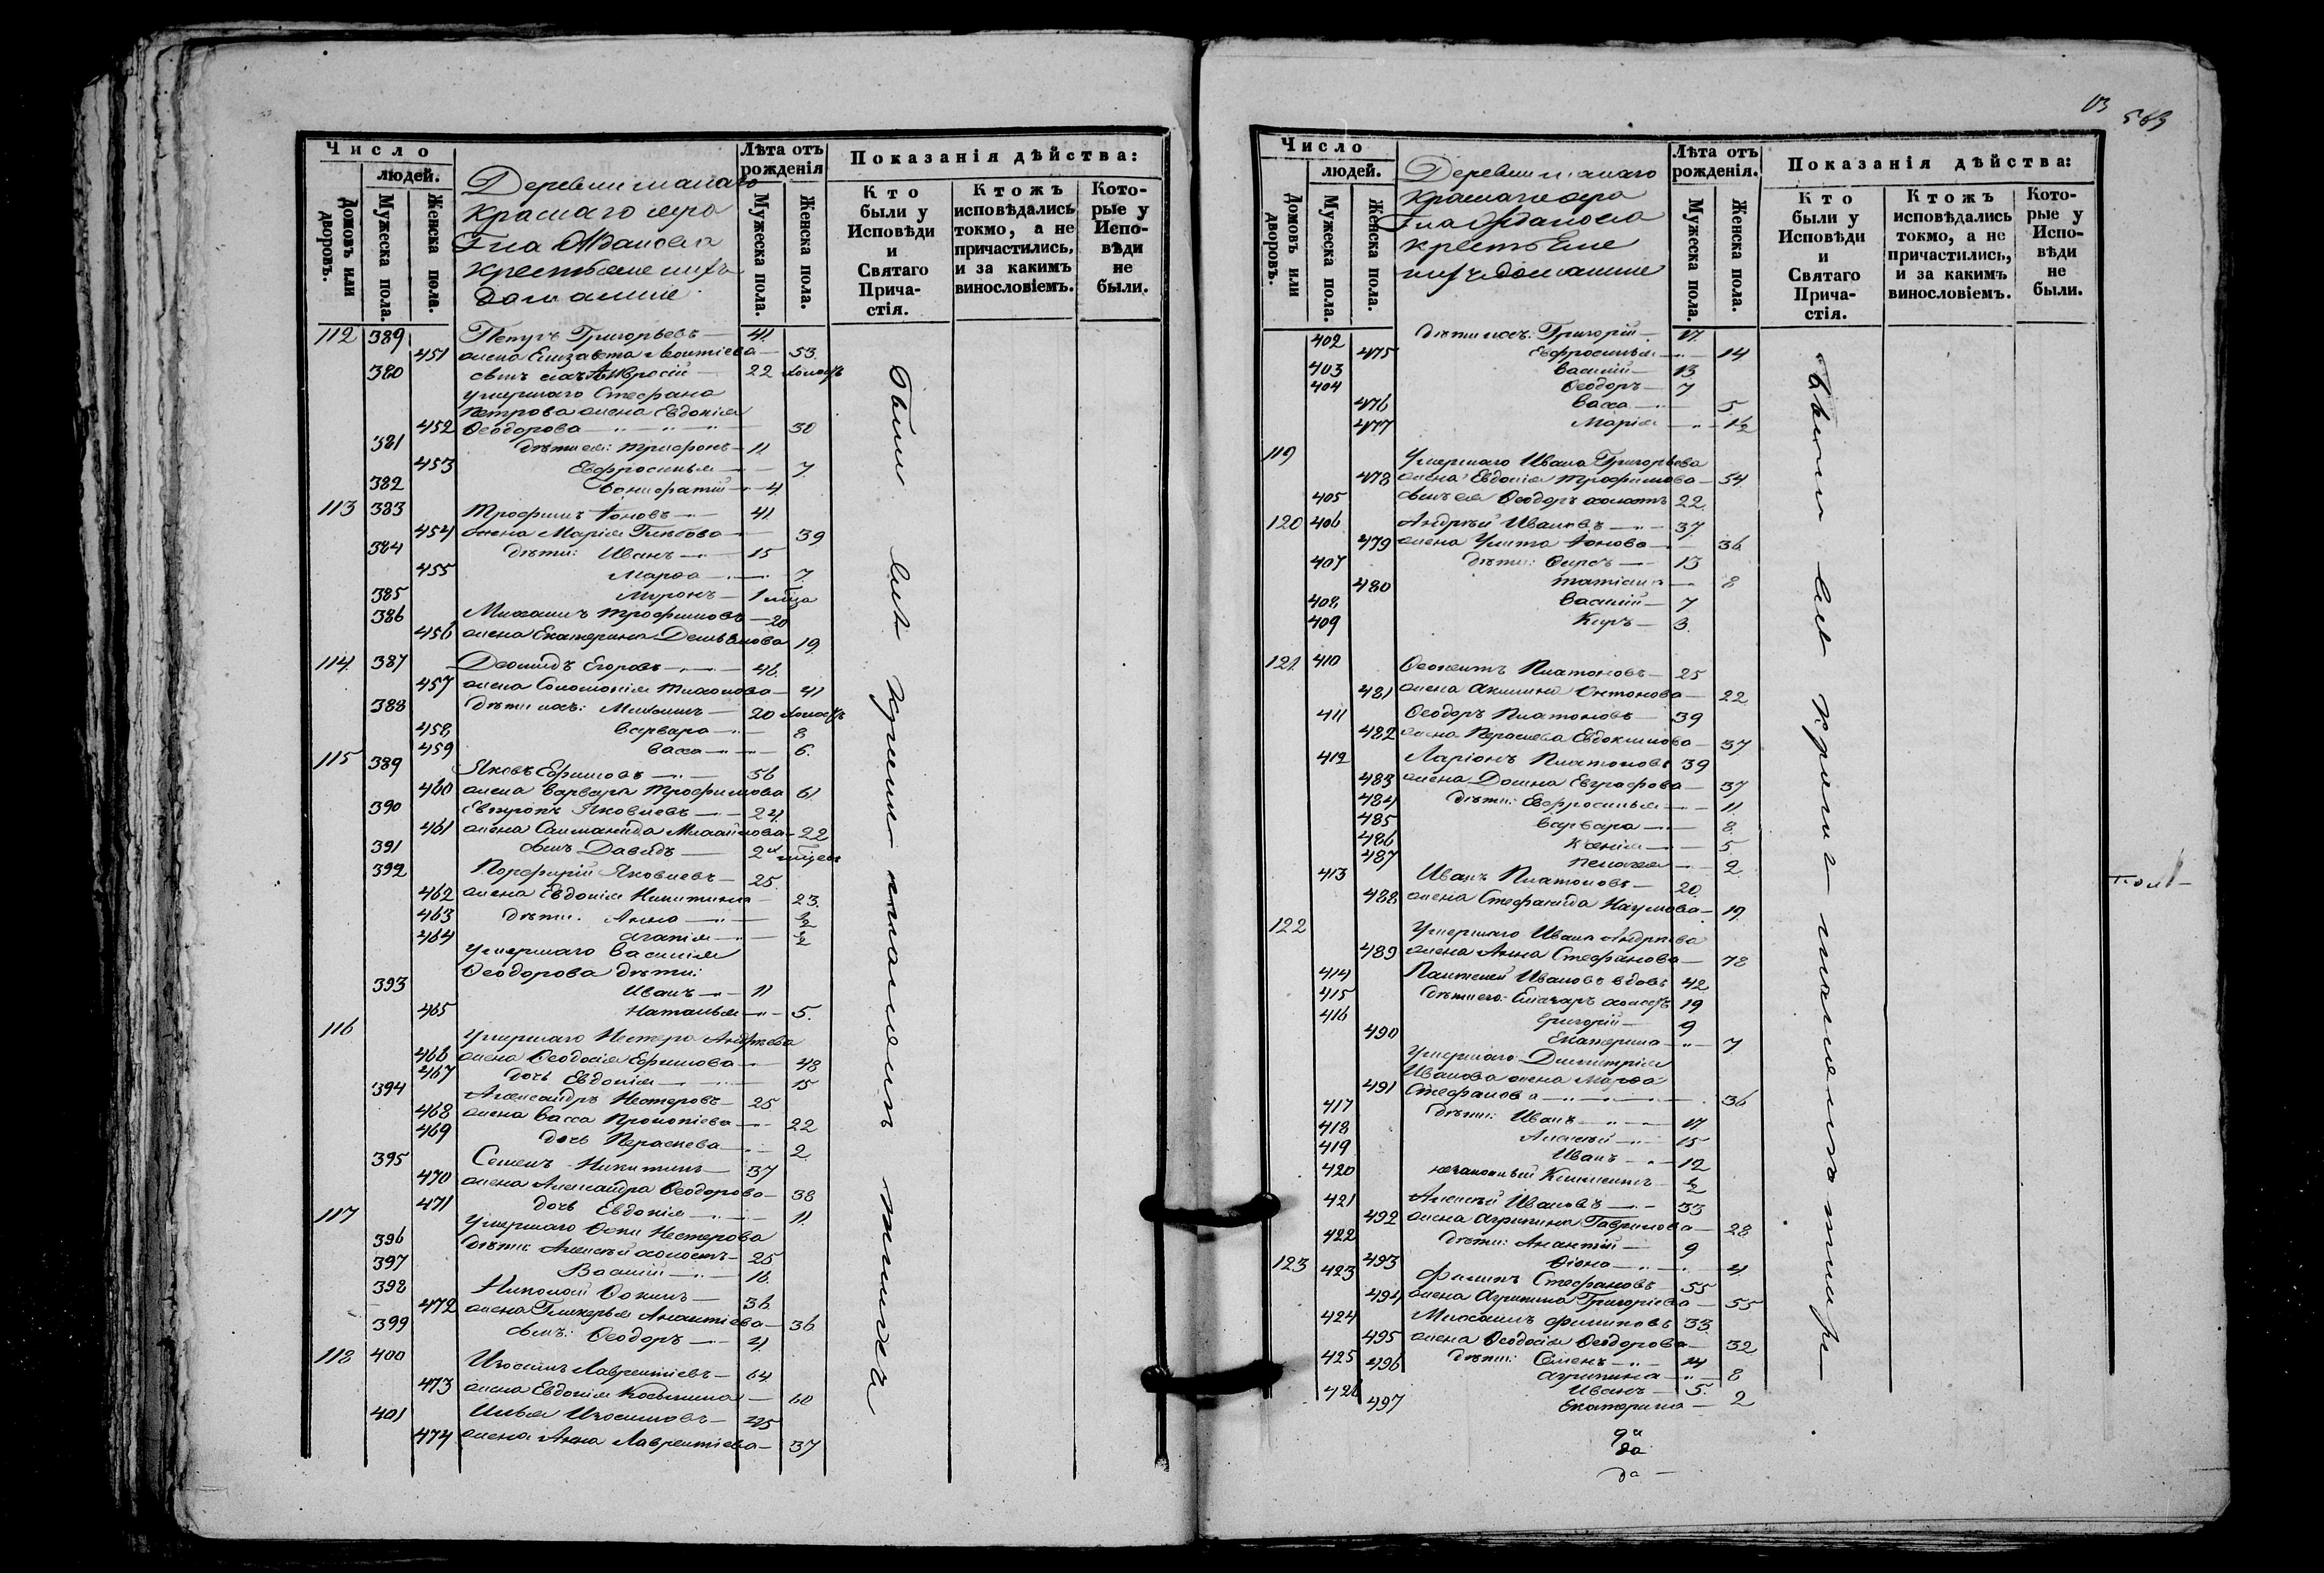 Число
людей.
Домовъ или дворовъ.
Мужеска пола.
Женска пола.
Деревни малаго
Краснаго яра
Г на Жданова
крестьяне и ихъ
домашние
Лѣта отъ рожденія
Мужеска пола.
Женска пола.
Показанія дѣйства:
Кто были у Исповѣди и Святаго Прича-стія.
Ктожъ исповѣдались токмо, а не причастились, и за какимъ винословіемъ.
Кото-рые у Испо-вѣди не были.
112 389 Петръ Григорьевъ 41
451 жена Елизавета Леонтіева 53
380 сынъ ихъ Амвросій 22 холостъ
умершаго Стефана
Петрова жена Евдокія
452 Ѳеодорова 30
381 дѣти ея: Трифонъ 11
453 Евфросинья 7
382 Вонифатій 4
113 383 Трофимъ Іоновъ 41
454 жена Марія Глѣбова 39
384 дѣти: Иванъ 15
455 Марѳа 7
385 Миронъ 1 мѣся
386 Михаилъ Трофимовъ 20
456 жена Екатерина Демьянова 19
114 387 Діомидъ Егоровъ 46
457 жена Соломонія Тихонова 41
388 дѣти ихъ: Михаилъ 20 холостъ
458 Варвара 8
459 Васса 6
115 389 Яковъ Ефимовъ 56
460 жена Варвара Трофимова 61
390 Евтропъ Яковлевъ 24
461 жена Саламанида Михайлова 22
391 сынъ Давидъ 2 мѣсяц
392 Порфирій Яковлевъ 25
462 жена Евдокія Никитина 23
463 дѣти: Анна 1/2
464 Агапія 1/2
умершаго Василія
Ѳеодорова дѣти:
393 Иванъ 11
465 Наталья 5
116 умершаго Нестера Андреева
466 жена Ѳеодосія Ефимова 48
467 дочь Евдокія 15
394 Александръ Нестеровъ 25
468 жена Васса Прокопіева 22
469 дочь Параскева 2
395 Семенъ Никитинъ 37
470 жена Александра Ѳеодорова 38
471 дочь Евдокія 11
117 умершаго Ѳоки Нестерова
396 дѣти: Алексѣй холостъ 25
397 Василій 18
398 Николай Ѳокинъ 36
472 жена Гликерья Анантіева 36
399 сынъ: Ѳеодоръ 4
118 400 Изосимъ Лаврентіевъ 64
473 жена Евдокія Косьмина 60
401 Илья Изосимовъ 45
474 жена Анна Лаврентіева 37
Были всѣ
563
Число
людей.
Домовъ или дворовъ.
Мужеска пола.
Женска пола.
Деревни малаго
Краснаго яра
Г на Жданова
крестьяне
и ихъ домашние
Лѣта отъ рожденія.
Мужеска пола.
Женска пола.
Показанія дѣйства:
Кто были у Исповѣди и Святаго Прича-стія.
Ктожъ исповѣдались токмо, а не причастились, и за какимъ винословіемъ.
Кото-рые у Испо-вѣди не были.
402 дѣти ихъ: Григорій 17
475 Евфросинья 14
403 Василій 13
404 Ѳеодоръ 7
476 Васса 5
477 Марія 1 1/2
119 умершаго Ивана Григорьева
478 жена Евдокія Трофимова 54
405 сынъ ея Ѳеодоръ холостъ 22
120 406 Андрѣй Ивановъ 37
479 жена Улита Іонова 36
407 дѣти: Ѳирсъ 13
480 Татіана 8
408 Василій 7
409 Киръ 3
121 410 Ѳеоктистъ Платоновъ 25
481 жена Акилина Антонова 22
411 Ѳеодоръ Платоновъ 39
482 жена Параскева Евдокимова 37
412 Ларіонъ Платоновъ 39
483 жена Домна Евграфова 37
484 дѣти: Евфросинья 11
485 Варвара 8
486 Ксенія 5
487 Пелагея 2
413 Иванъ Платоновъ 20
488 жена Стефанида Наумова 19
122 умершаго Ивана Андреева
489 жена Анна Стефанова 78
414 Пантелей Ивановъ вдовъ 42
415 дѣти его: Елизаръ холостъ 19
416 Григорій 9
490 Екатерина 7
умершаго Димитрія
Иванова жена Марѳа
491 Стефанова 36
417 дѣти: Иванъ 17
418 Алексѣй 15
419 Иванъ 12
420 незаконный Климентъ 1/2
421 Алексѣй Ивановъ 33
492 жена Агрипина Гаврилова 28
422 дѣти: Анантій 9
493 Ѳіона 4
123 423 Филипъ Стефановъ 55
494 жена Агрипина Григоріева 55
424 Михаилъ Филиповъ 33
495 жена Ѳеодосія Ѳеодорова 32
425 дѣти: Семенъ 14
496 Агрипина 8
426 Иванъ 5
497 Екатерина 2
Были всѣ